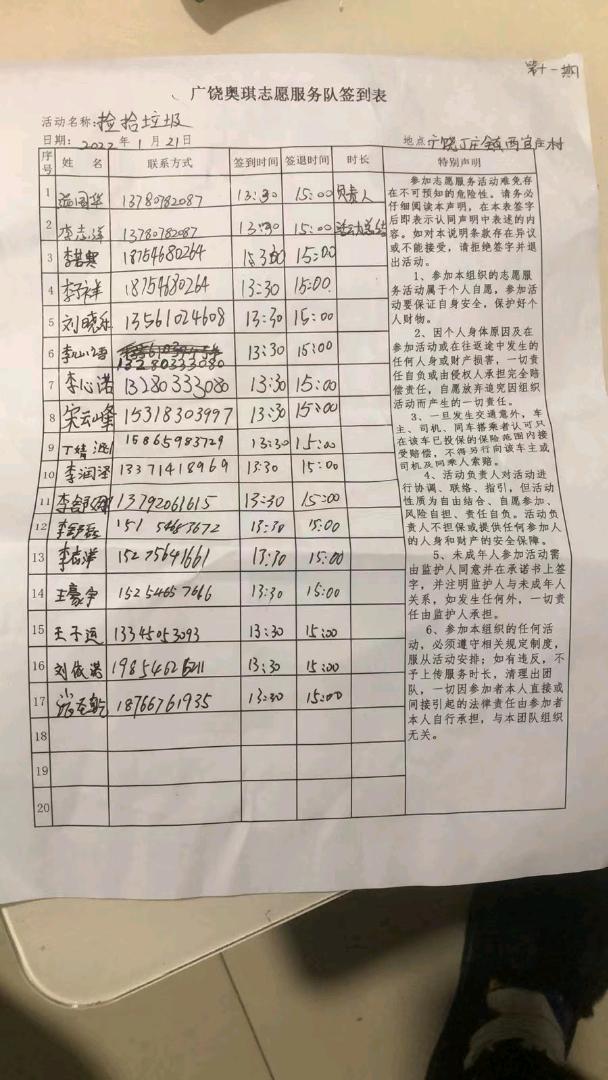 第十一期
广饶奥琪志愿服务队签到表
活动名称:捡拾垃圾
日期: 2022 年 1 月 21 日 地点 广饶丁庄镇西官庄村
序号 姓 名 联系方式 签到时间 签退时间 时长 特别声明
1 13780782087 13:30 15:00 负责人
2 李志洋 13780782087 13:30 15:00 活动总结
3 18754680264 15:00
4 李子祥 18754680264 13:30 15:00
5 刘晓乐 13561024608 13:30 15:00
6 13280333080 13:30 15:00
7 李心诺 13280333080 13:30 15:00
8 宋云峰 15318303997 13:30 15:00
9 丁婧 15865983729 13:30 15:00
10 李润泽 13371418969 13:30 15:00
11 13792061615 13:30 15:00
12 13:30 15:00
13 15275641661 13:30 15:00
14 王豪宇 15254657666 13:30 15:00
15 王子恒 13345053093 13:30 15:00
16 刘依诺 13:30 15:00
17 18766761935 13:30 15:00
18
19
20
参加志愿服务活动难免存
在不可预知的危险性。请务必
仔细阅读本声明，在本表签字
后即表示认同声明中表述的内
容。如对本说明条款存在异议
或不能接受，请拒绝签字并退
出活动。
1、参加本组织的志愿服
务活动属于个人自愿，参加活
动要保证自身安全，保护好个
人财物。
2、因个人身体原因及在
参加活动或在往返途中发生的
任何人身或财产损害，一切责
任自负或由侵权人承担完全赔
偿责任，自愿放弃追究因组织
活动而产生的一切责任。
3、一旦发生交通意外，车
主、司机、同车搭乘者认可只
在该车已投保的保险范围内接
受赔偿，不得另行向该车主或
司机及同乘人索赔。
4、活动负责人对活动进
行协调、联络、指引，但活动
性质为自由结合、自愿参加、
风险自担、责任自负。活动负
责人不担保或提供任何参加人
的人身和财产的安全保障。
5、未成年人参加活动需
由监护人同意并在承诺书上签
字，并注明监护人与未成年人
关系，如发生任何外，一切责
任由监护人承担。
6、参加本组织的任何活
动，必须遵守相关规定制度，
服从活动安排；如有违反，不
予上传服务时长，清理出团
队，一切因参加者本人直接或
间接引起的法律责任由参加者
本人自行承担，与本团队组织
无关。